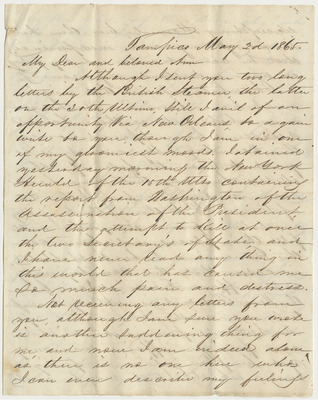 Tampico May 2d 1865.
My Dear and beloved Ann
Although I sent you two long
letters by the British Steamer the latter
on the 30th Ultimo, still I avail of an
opportunity Via New Orleans to again
write to you, though I am in one
of my gloomiest moods. I obtained
yesterday morning the New York
Herald of the 15th Ulto containing
the report from Washington of the
Assassination of the President
and the attempt to kill at once
the two Secretarys of State, and
I have never read any thing in
this world that has caused me
so much pain and distress.
Not receiving any letters from
you, although I am sure you wrote
is another saddening thing for
me and now I am indeed alone
as there is no one here who
I can even describe my feelings